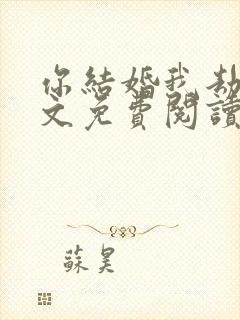 你結婚我劫
文免費閱讀
蘇昊